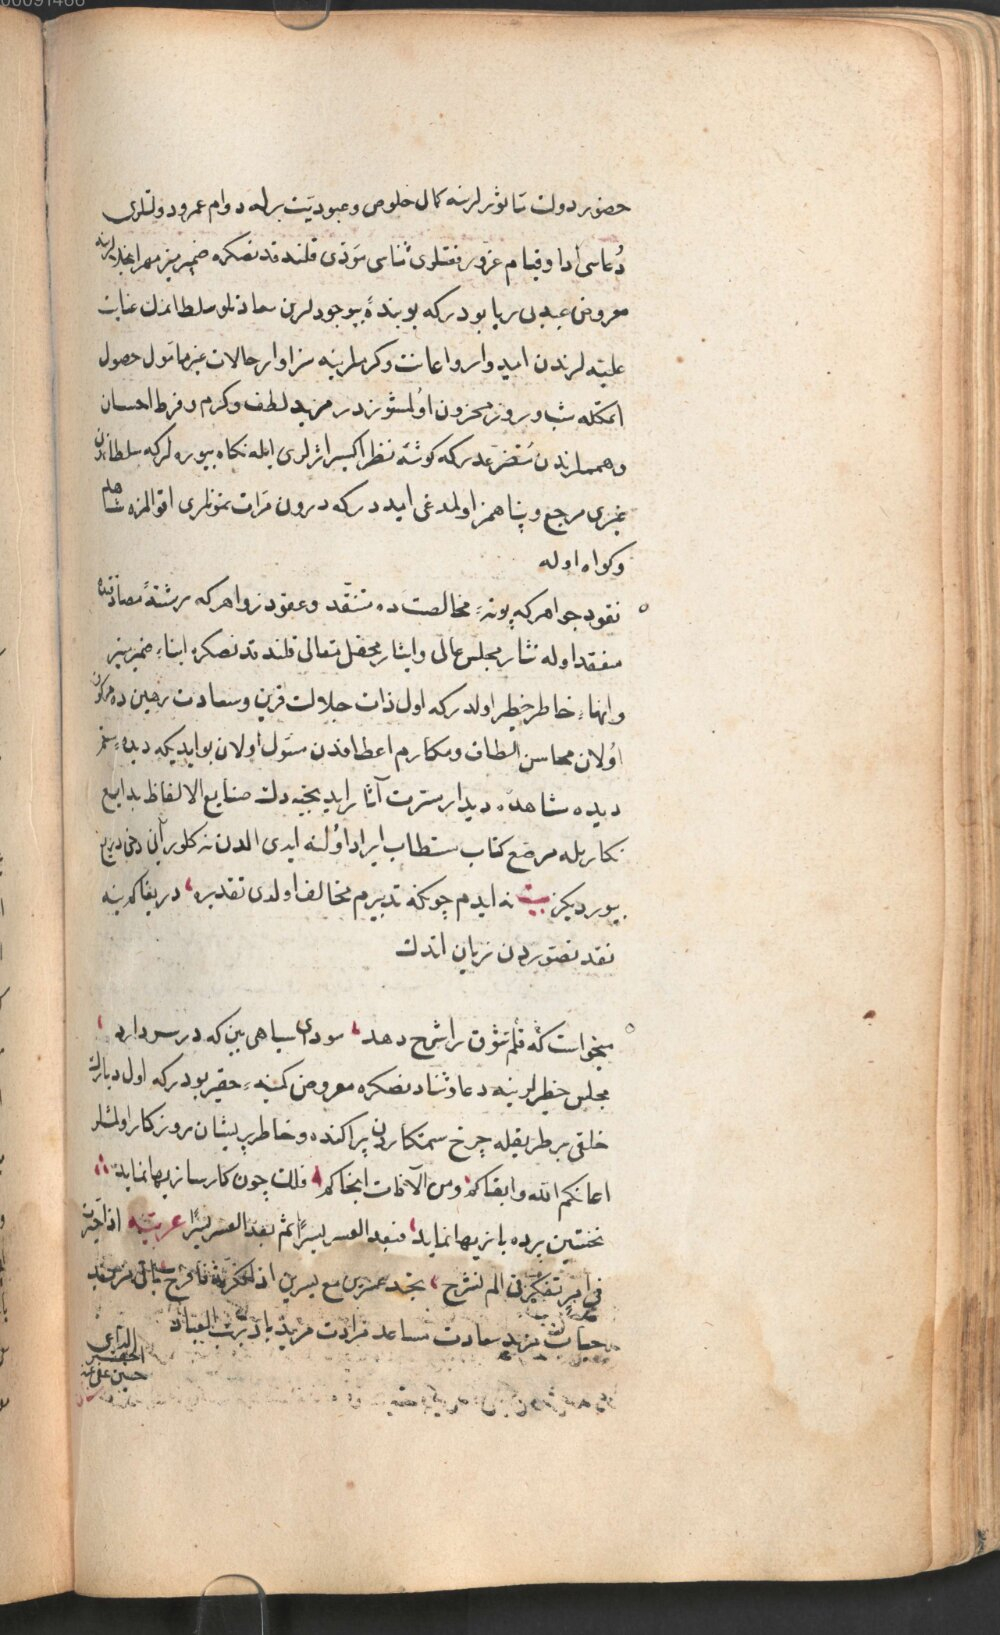 حضور دولت تأثیرلرینه كمال خلوص و عبودیت برله دوام عمر و دولتلری
دعاسی ادا و قیام عز و رفعتلری ثناسی مؤدی قلندقدنصكره ضمیر منیر مهر انجلالرینه
معروض عبد بی ریا بودركه بو بندۀ بیوجودلرین سعادتلو سلطانمك عنایت
علیه لرندن امیدوار و اعانت و كرملرینه سزاوار حالات غیر مأمول حصول
اتمكله شب و روز محزون اولمشوزدر مزید لطف و كرم و فرط احسان
و هممـلرندن متضرعدركه كوشۀ نظر اكسیر اثرلری ایله نكاه بیوره لركه سلطانمدن
غیری مرجع و پناهمز اولمدغی امیددركه درون مرآت نمونلری اقوالمزه شاهد
و كواه اوله
نقود جواهر كه بوتۀ مخالصت ده متنقد و عقود زواهر كه رشتۀ مصادقتده
منعقد اوله نثار مجلس عالی و ایثار محفل متعالی قلندقدنصكره انباء ضمیر منیر
و انهاء خاطر خطیر اولدركه اول ذات جلالت قرین و سعادت رهین ده مركوز
اولان محاسن الطاف و مكارم اعطافدن مسئول اولان بو ایدیكه دیدۀ ستم
دیده مشاهدۀ دیدار مسرت آثار ایدنجیه دك صنایع الالفاظ بدایع
نكار بله مرصع كتاب مستطاب ایراد اولنه ایدی الدن نه كلور آنی دخی دریغ
بیوردیكز بیت نه ایدم چونكه تدبیرم مخالف اولدی تقدیره، دریغا كم ینه
نقد تصوردن زیان اتدك
میخواست كه قلم شوق ترا شرح دهد، سودای سیاهی بین كه در سر دارد،
مجلس خطیرلرینه دعا و ثنادنصكره معروض كمینۀ حقیر بودركه اول دیارك
خلقی بر طریقیله چرخ ستمكاردن پراكنده و خاطر پریشان روزكار اولمشلر
اعانكم الله و ابقاكم، و من الآفات انجاكم، فلك چون كارسازیها نماید
نخستین پرده بازیها نماید، فبعد العسر یسرًا ثم بعد العسر یسرًا عربیه اذا اجترت
فی امر تفكر فی الم نشرح، تجد عسرین مع یسرین اذا فكرته فافرح، باقی
حیات مزید سعادت مساعد مرادت مزید باد برب العباد
الداعی
الحقیر
حسین علی عنه